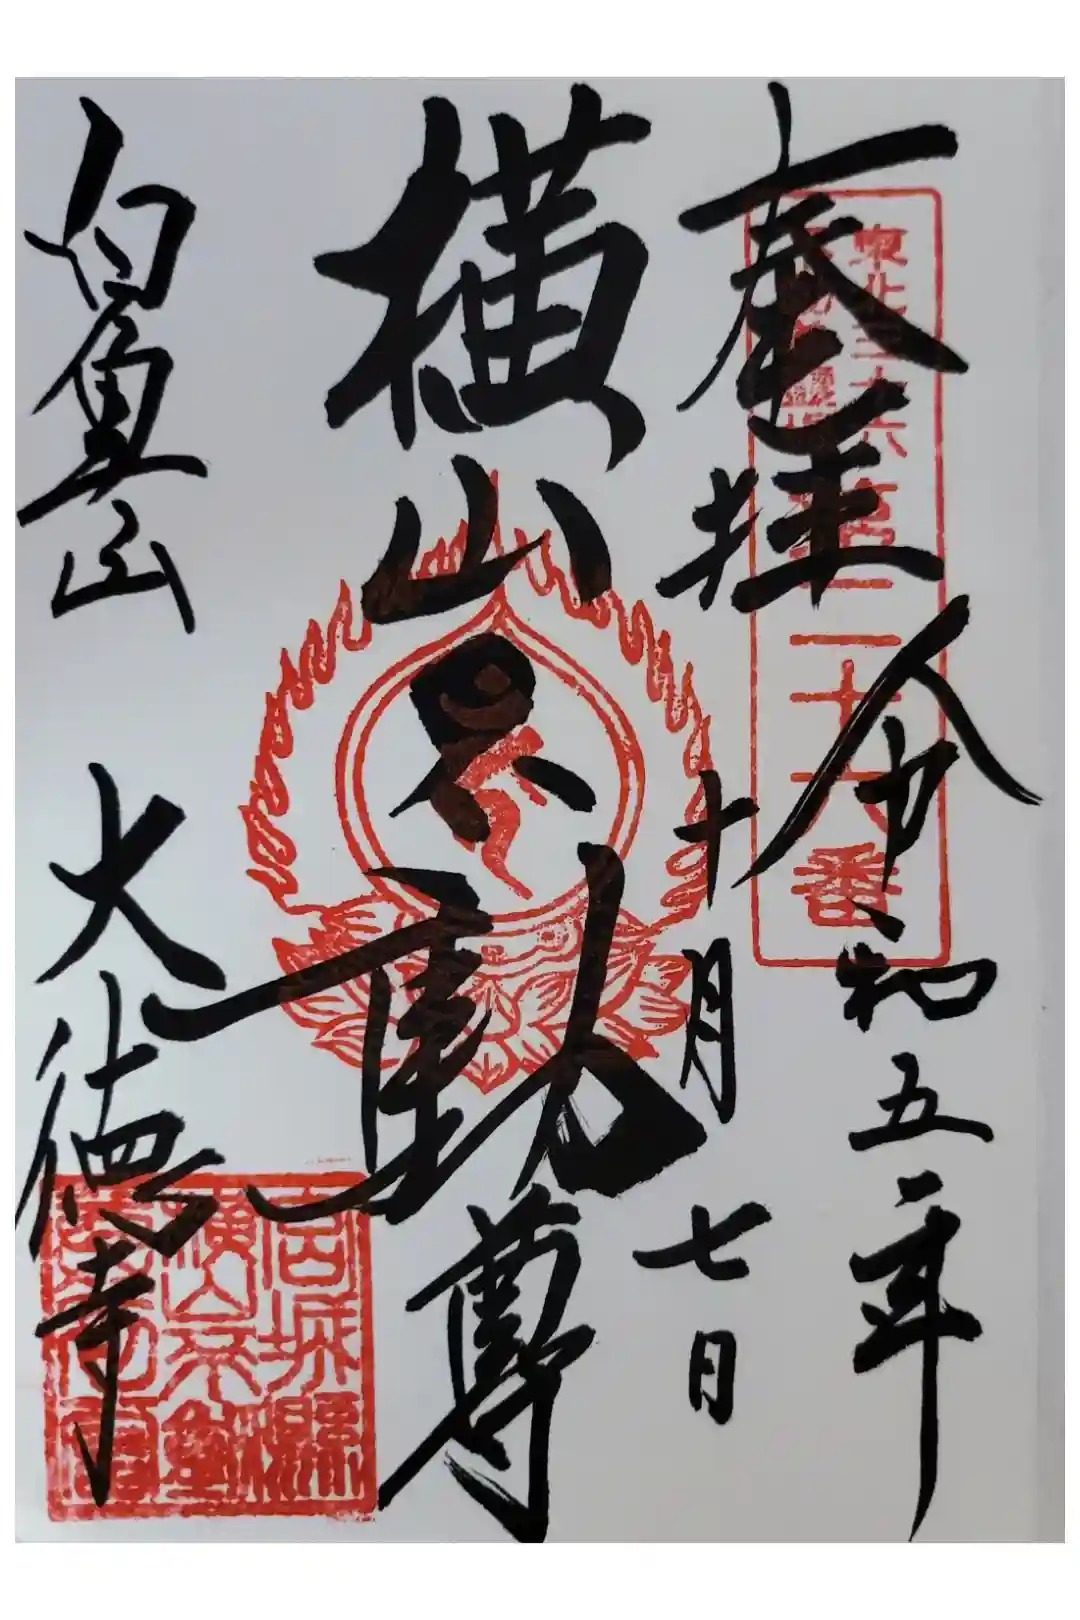 奉拝
令和五年
十月七日
横山不動尊
白魚山
大徳寺
東北三十六
第二十六番
宮城縣
横山不動